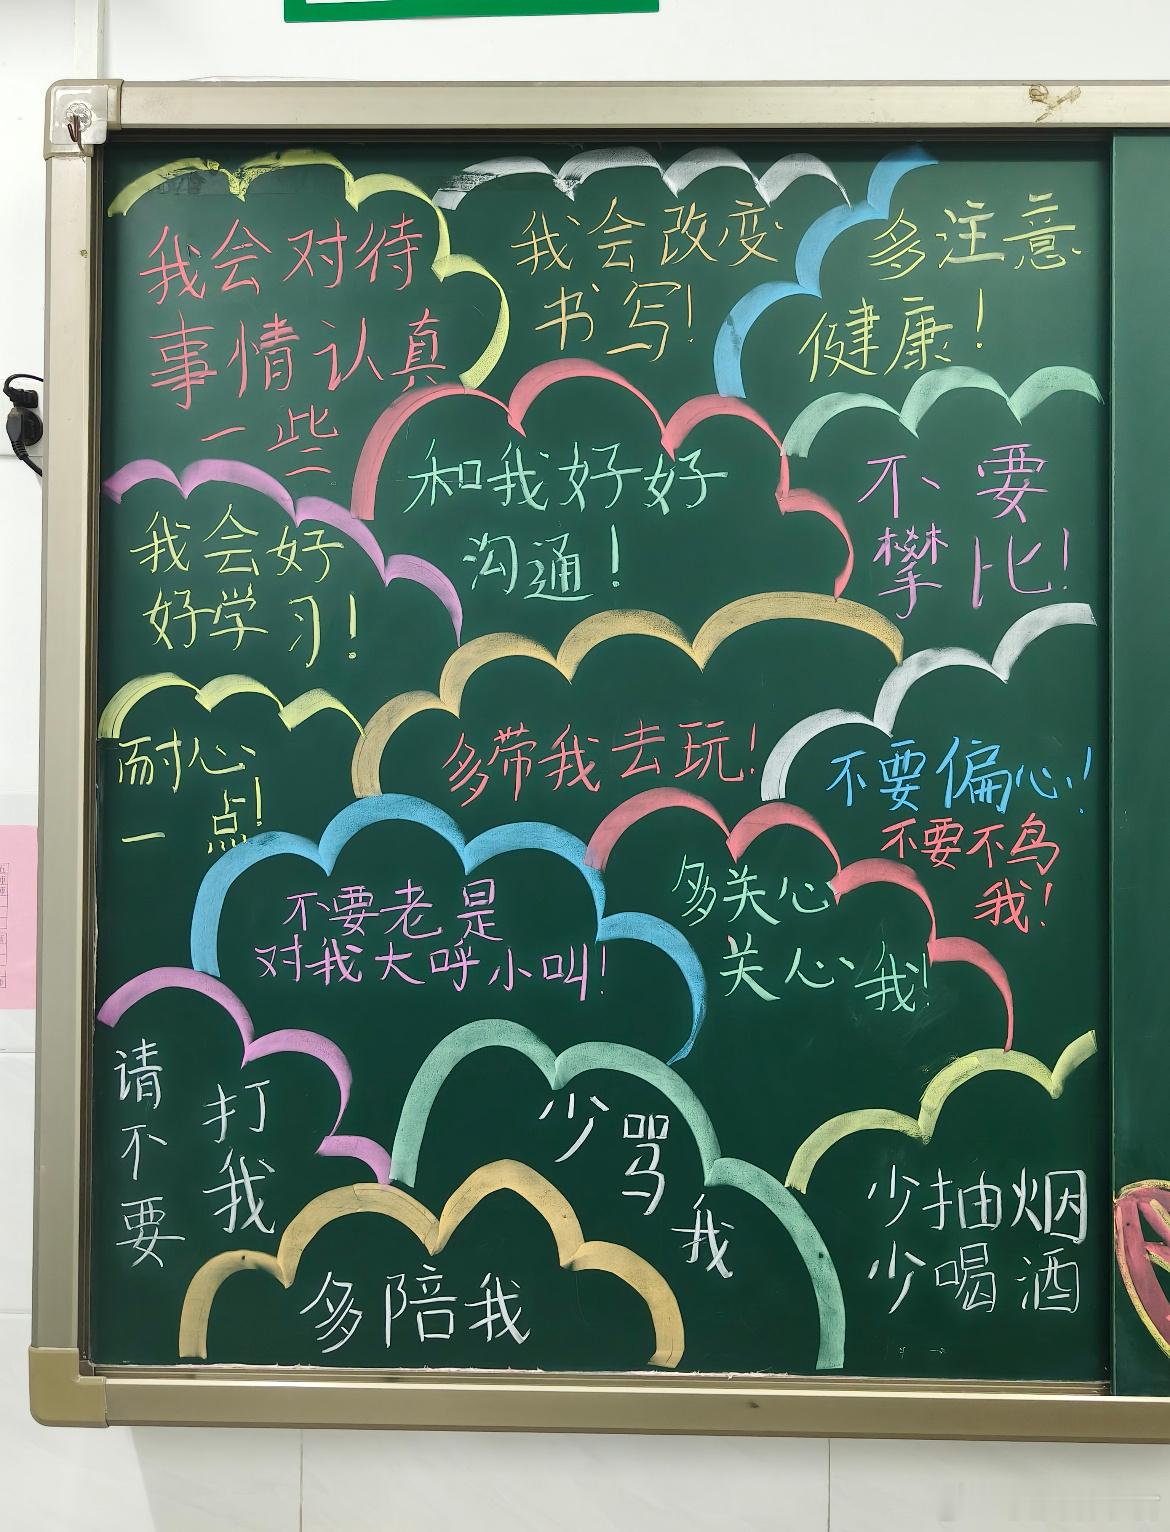 我会对待
事情认真
一些
我会改变
书写！
多注意
健康！
和我好好
沟通！
不要
攀比！
我会好
好学习！
耐心
一点！
多带我去玩！
不要偏心！
不要不鸟
我！
不要老是
对我大呼小叫！
多关心
关心我！
请不要
打我
少骂我
少抽烟
少喝酒
多陪我